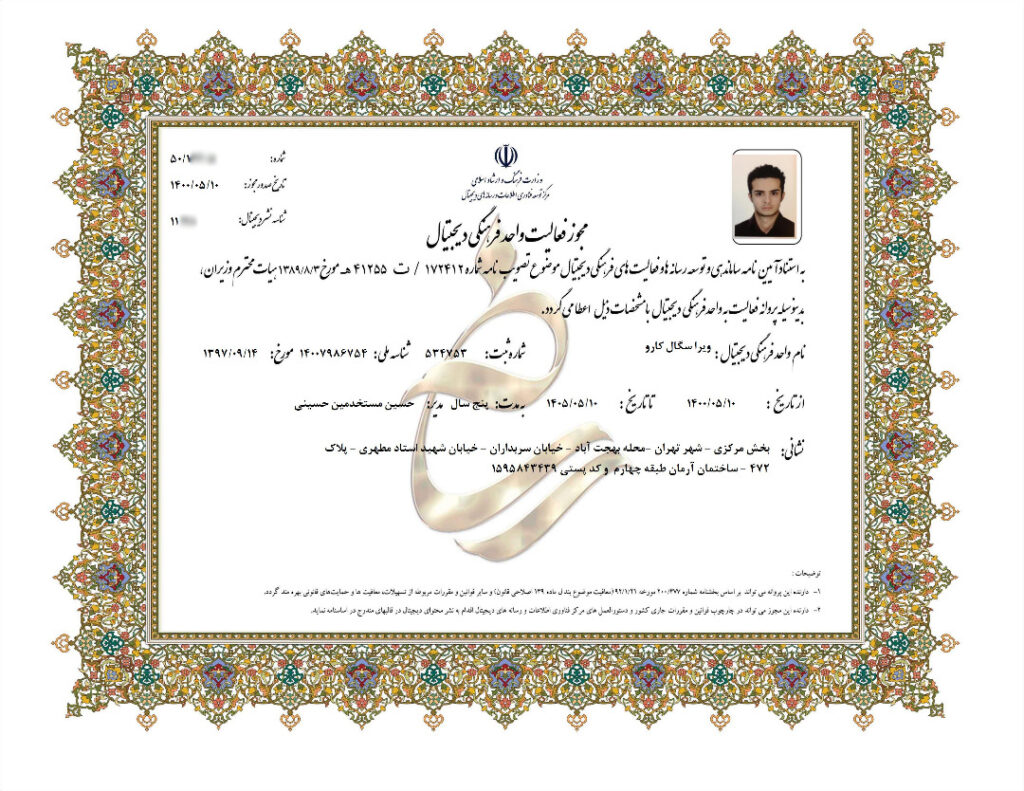 وزارت فرهنگ و ارشاد اسلامی
مرکز توسعه فناوری اطلاعات و رسانه های دیجیتال
شماره: ۵۰/۱
تاریخ صدور مجوز: ۱۴۰۰/۰۵/۱۰
شناسه نشر دیجیتال: ۱۱
مجوز فعالیت واحد فرهنگی دیجیتال
به استناد آیین نامه ساماندهی و توسعه رسانه ها و فعالیت های فرهنگی دیجیتال موضوع تصویب نامه شماره ۱۷۲۴۱۲ / ت ۴۱۲۵۵ هـ مورخ ۱۳۸۹/۸/۳ هیات محترم وزیران،
بدینوسیله پروانه فعالیت به واحد فرهنگی دیجیتال با مشخصات ذیل اعطا می گردد.
نام واحد فرهنگی دیجیتال: ویرا سگال کارو شماره ثبت: ۵۳۴۷۵۳ شناسه ملی: ۱۴۰۰۷۹۸۶۷۵۴ مورخ: ۱۳۹۷/۰۹/۱۴
از تاریخ: ۱۴۰۰/۰۵/۱۰ تا تاریخ: ۱۴۰۵/۰۵/۱۰ به مدت: پنج سال مدیر: حسین مستخدمین حسینی
نشانی: بخش مرکزی - شهر تهران -محله بهجت آباد - خیابان سربداران - خیابان شهید استاد مطهری - پلاک
۴۷۲ - ساختمان آرمان طبقه چهارم و کد پستی ۱۵۹۵۸۴۳۴۳۹
توضیحات:
۱- دارنده این پروانه می تواند بر اساس بخشنامه شماره ۲۰۰/۳۷۷ مورخه ۹۲/۱/۲۱(معافیت موضوع بند ل ماده ۱۳۹ اصلاحی قانون) و سایر قوانین و مقررات مربوطه از تسهیلات، معافیت ها و حمایت‌های قانونی بهره مند گردد.
۲- دارنده این مجوز می تواند در چارچوب قوانین و مقررات جاری کشور و دستورالعمل های مرکز فناوری اطلاعات و رسانه های دیجیتال اقدام به نشر محتوای دیجیتال در قالبهای مندرج در اساسنامه نماید.